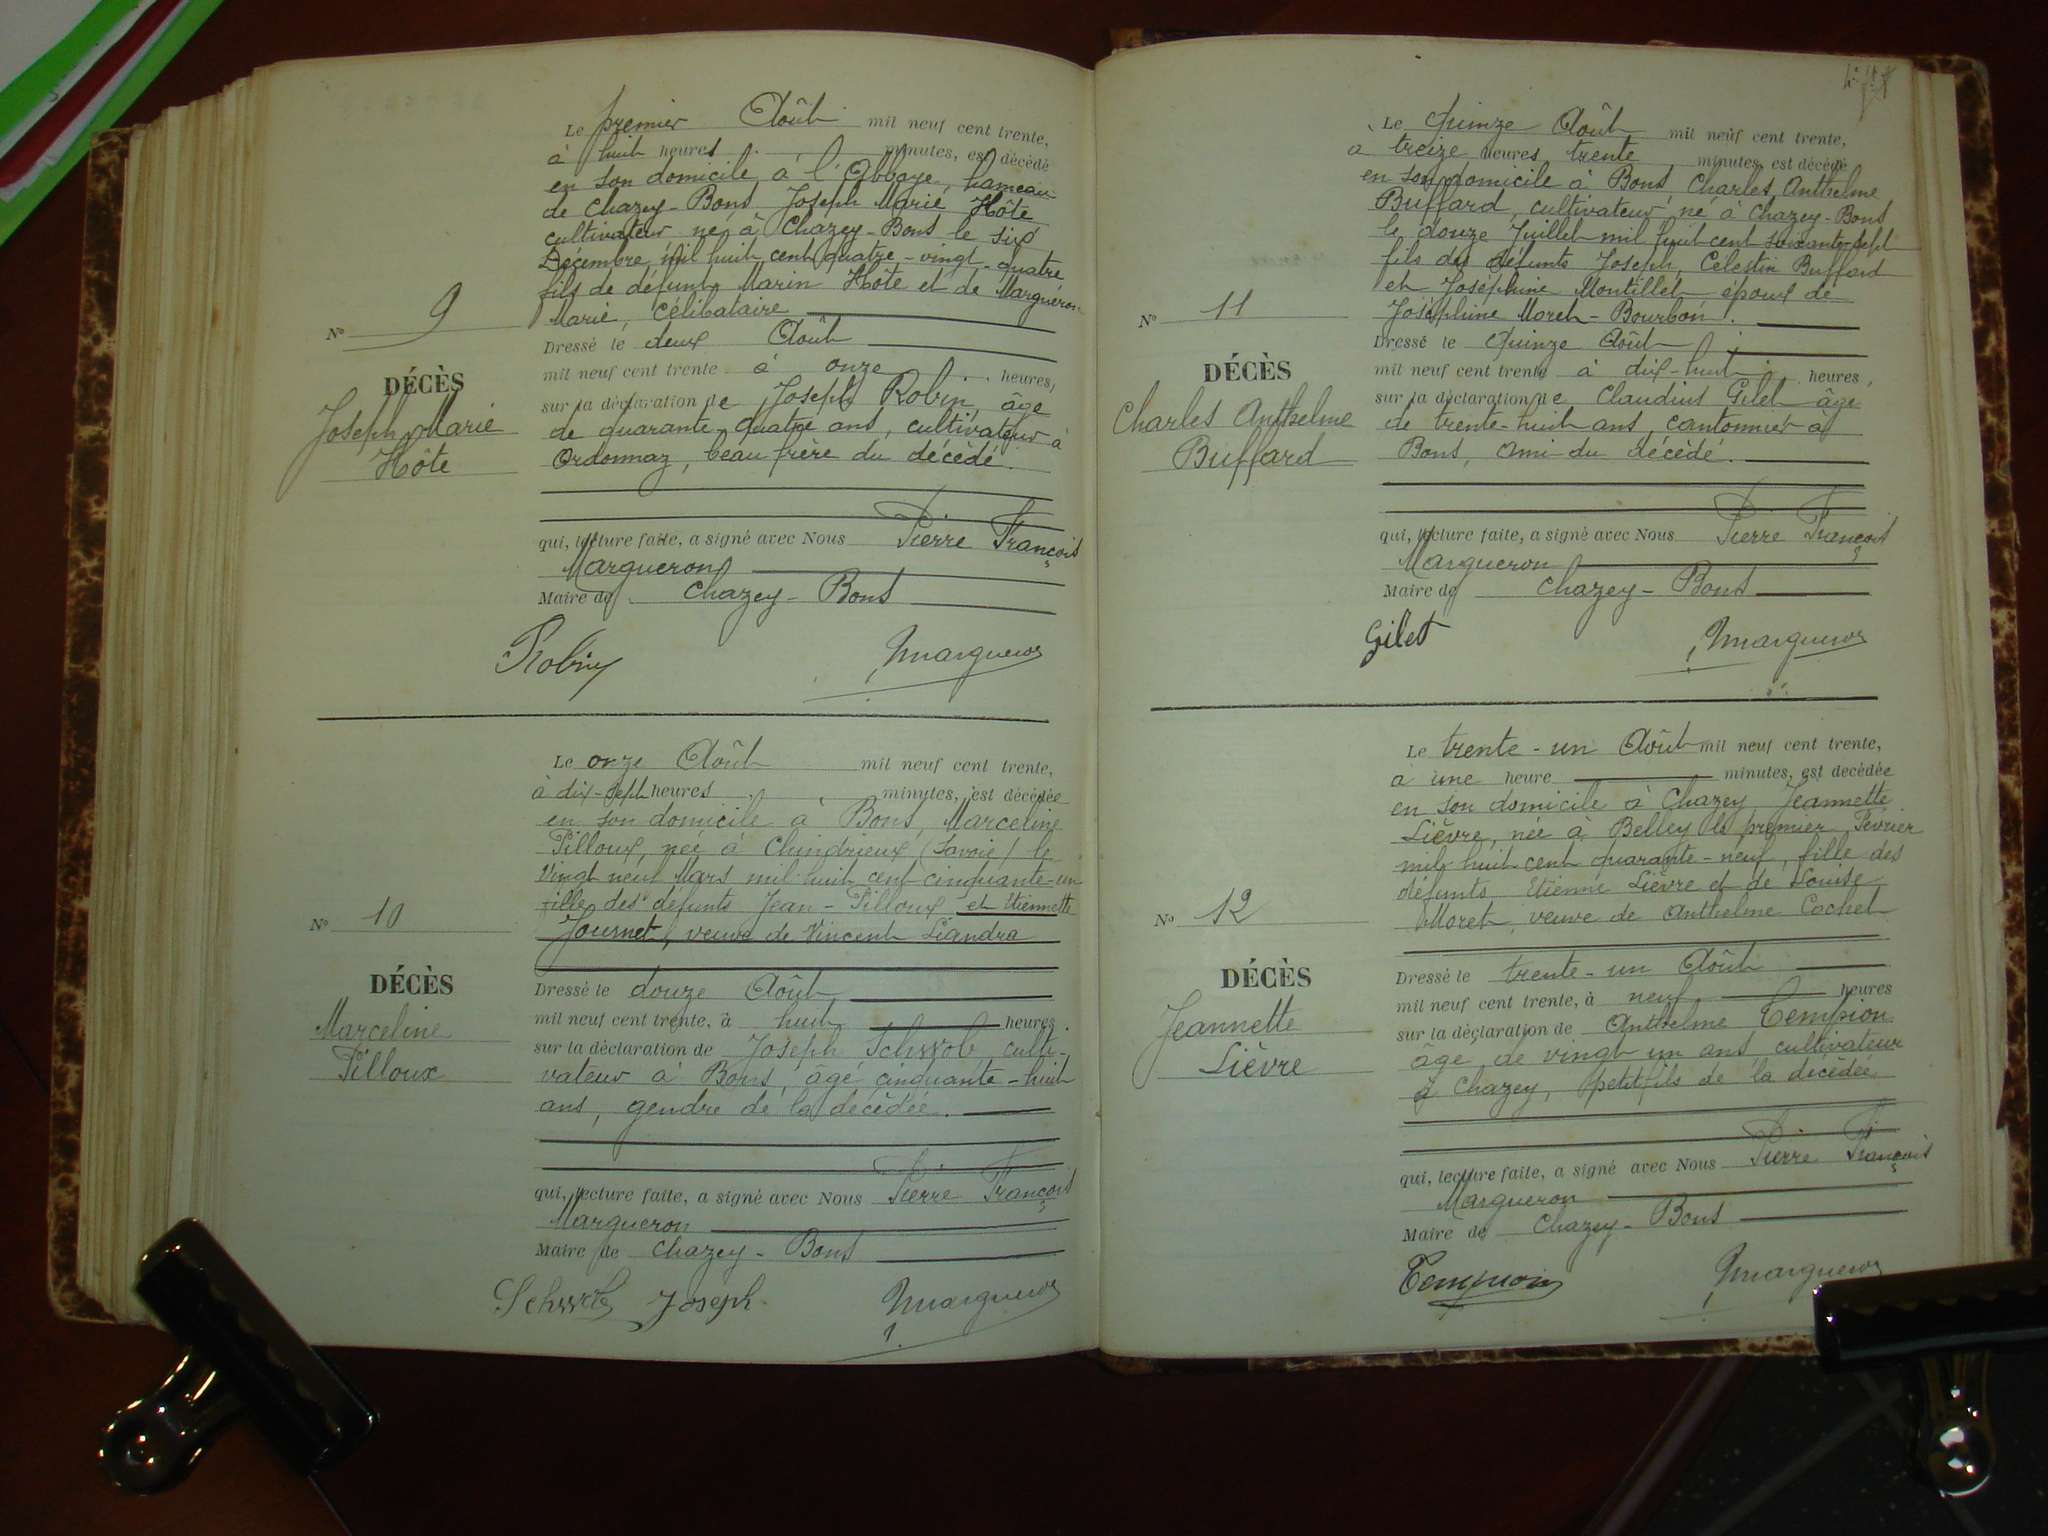 Le premier Août mil neuf cent trente,
à huit heures minutes, est décédé
en son domicile à l'Abbaye, hameau
de Chazey-Bons Joseph Marie Hôte
cultivateur né à Chazey-Bons le six
Décembre mil huit cent quatre-vingt-quatre
fils de défunt Marin Hôte et de Marguéron
Marie, célibataire
N° 9
DÉCÈS
Joseph Marie
Hôte
Dressé le deux Août
mil neuf cent trente à onze heures,
sur la déclaration de Joseph Robin, âge
de quarante-quatre ans, cultivateur à
Ordonnaz, beau frère du décédé.
qui, lecture faite, a signé avec Nous Pierre François
Margueron
Maire de Chazey-Bons
Robin Margueron
Le onze Août mil neuf cent trente,
à dix-sept heures minutes, est décédée
en son domicile à Bons, Marceline
Pilloux, née à Chindrieux (Savoie) le
vingt neuf Mars mil huit cent cinquante-un
fille des défunts Jean-Pilloux et Etiennette
Journet, veuve de Vincent Liandra
N° 10
DÉCÈS
Marceline
Pilloux
Dressé le douze Août
mil neuf cent trente, à huit heures.
sur la déclaration de Joseph Schwob, culti-
vateur à Bons, âgé cinquante-huit
ans, gendre de la décédée.
qui, lecture faite, a signé avec Nous Pierre François
Margueron
Maire de Chazey-Bons
Schwob Joseph Margueron
Le Quinze Août mil neuf cent trente,
à treize heures trente minutes, est décédé
en son domicile à Bons, Charles Anthelme
Buffard, cultivateur, né à Chazey-Bons
le douze Juillet mil huit cent soixante-sept
fils des défunts Joseph, Célestin Buffard
et Joséphine Montillet époux de
Joséphine Moret-Bourbon.
N° 11
DÉCÈS
Charles Anthelme
Buffard
Dressé le Quinze Août
mil neuf cent trente à dix-huit heures,
sur la déclaration de Claudius Gilet âge
de trente-huit ans, cantonnier à
Bons, ami du décédé.
qui, lecture faite, a signé avec Nous Pierre François
Margueron
Maire de Chazey-Bons
Gilet Margueron
Le trente-un Août mil neuf cent trente,
a une heure minutes, est decédée
en son domicile à Chazey, Jeannette
Lièvre, née à Belley le premier Février
mil huit cent quarante-neuf, fille des
défunts Etienne Lièvre et de Louise
Moret, veuve de Anthelme Cochet
N° 12
DÉCÈS
Jeannette
Lièvre
Dressé le trente-un Août
mil neuf cent trente, à neuf heures
sur la déclaration de Anthelme Tempion
âge de vingt un ans cultivateur
à Chazey, petit-fils de la décédée
qui, lecture faite, a signé avec Nous Pierre François
Margueron
Maire de Chazey-Bons
Margueron